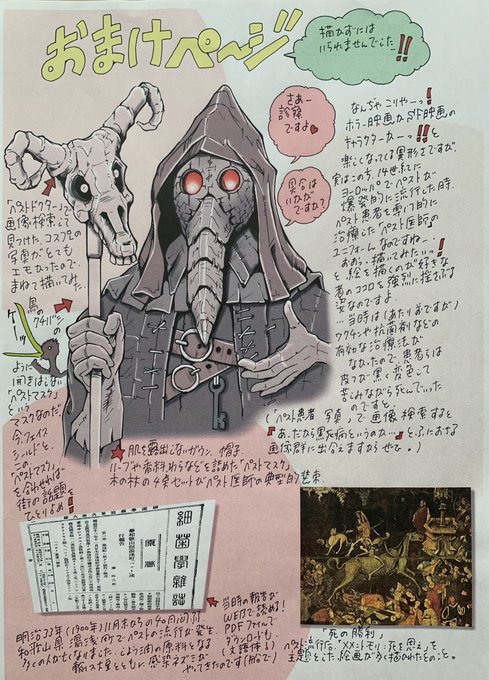 おまけページ
描かずには
いられませんでした!!
さあー
診察
ですよ♥
具合は
いかが
ですか?
なんぢゃこりゃーっ!
ホラー映画かSF映画の
キャラクターかーっ!!と
楽しくなってくる異形さですが
実はこのち、14世紀に
ヨーロッパでペストが
爆発的に流行した時、
ペスト患者を専門的に
治療した「ペスト医師」の
ユニフォームなのですねー。
ああっ…描いてみたいっ!
と、絵を描くのが好きな
者のココロを強烈に揺さぶる
姿なのですよ。
…当時は(あたり前ですが)
ワクチンや抗菌剤などの
有効な治療法が
なかったので、患者らは
皮フが黒く変色して
苦しみながら死んでいった
のですと。
(「ペスト患者 写真」で画像検索すると
『あ、だから黒死病というのな…』とふにおちる
画像群に出会えますからぜひ。)
「ペストドクター」って
画像検索して
見つけた、コスプレの
写真がとても
エモなったので、
まねて描いてみた。
鳥の
クチバシの
ケーッ
ように
「ペストマスク」
という
マスクなのだ。
今、フェイス
シールドと、
この
「ペストマスク」
を合わせれば
街の話題を
ひとりじめ!
★肌を露出しないガウン、帽子、
ハーブや香料、わらなどを詰めた「ペストマスク」、
木の杖の4点セットがペスト医師の典型的衣装。
細菌學雜誌
原著
当時の報告が
WEBで読め!
PDFファイルで
ダウンロードも。
(文語体!)
明治33年(1900年)11月末からの40日間、
和歌山県湯浅町でペストの流行が発生
多くの人が亡くなりました。しょう油の原料となる
輸入大豆とともに感染ネズミが
やってきたのです
「死の勝利」
ペスト流行后、「メメント・モリ:死を思え」を
主題とした絵画が多く描かれたとのこと。